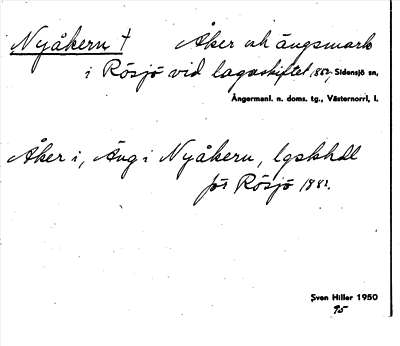 Nyåkern † Åker och ängsmark
i Rösjö vid lagaskiftet 1882, Sidensjö sn,
Ångermanl. n. doms. tg., Västernorrl. l.
Åker i, Äng i Nyåkern, lgskhdl
för Rösjö 1882.
Sven Hiller 1950
95